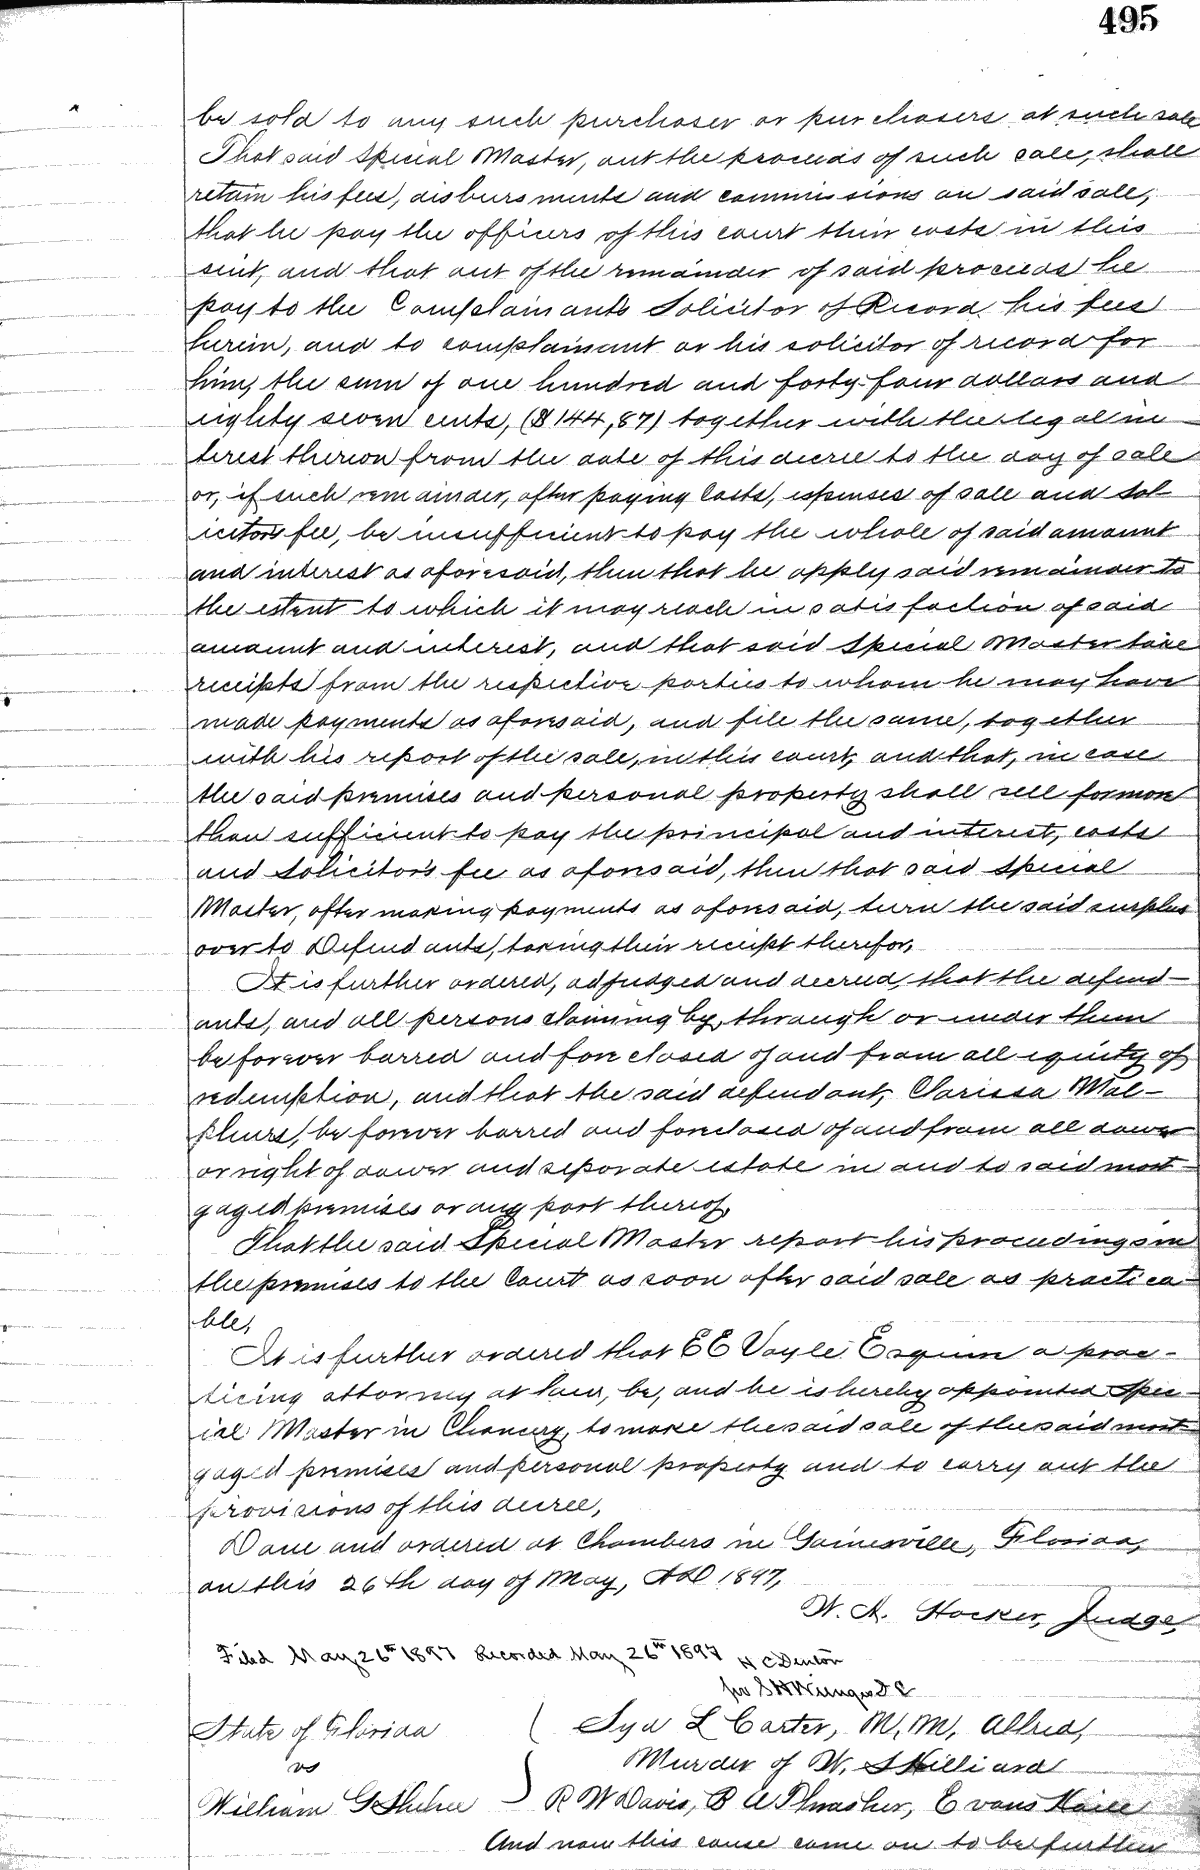 495
be sold to any such purchaser or purchasers at such sale
That said Special Master, out the proceeds of such sale, shall
retain his fees, disbursments and commissions on said sale,
that he pay the officers of this court their costs in this
suit, and that out of the remainder of said proceeds he
pay to the Complainant's Solicitor of Record his fees
herein, and to complainant or his solicitor of record for
him, the sum of one hundred and forty four dollars and
eighty seven cents, ($144,87) together with the legal in
terest thereon from the date of this decree to the day of sale
or, if such remainder, after paying Costs, expenses of sale and Sol-
icitors fee, be insufficient to pay the whole of said amount
and interest as aforesaid, then that he apply said remainder to
the extent to which it may reach in satisfaction of said
amount and interest, and that said Special Master take
receipts from the respective parties to whom he may have
made payments as aforesaid, and file the same, together
with his report of the sale, in this court, and that, in case
the said premises and personal property shall sell for more
than sufficient to pay the principal and interest, costs
and Solicitor's fee as aforesaid, then that said Special
Master, after making payments as aforesaid, turn the said surplus
over to Defendants, taking their receipt therefor,
It is further ordered, adjudged and decreed, that the defend-
ants, and all persons claiming by, through or under them
be forever barred and foreclosed of and from all equity of
redemption, and that the said defendant, Clarissa Mal-
pheurs, be forever barred and foreclosed of and from all dower
or right of dower and separate estate in and to said mort-
gaged premises or any part thereof,
That the said Special Master report his proceedings in
the premises to the Court as soon after said sale as practica-
ble,
It is further ordered that E E Voyle Esquire a prac-
ticing attorney at law, be, and he is hereby appointed Spec-
ial Master in Chancery, to make the said sale of the said mort-
gaged premises and personal property and to carry out the
provisions of this decree,
Done and ordered at Chambers in Gainesville, Florida,
on this 26th day of May, AD 1897,
W. A. Hocker, Judge,
Filed May 26th 1897 Recorded May 26th 1897 H C Denton
per S H Wienges D C
State of Florida ( Syd L Carter, M. M. Allred,
vs Murder of W. S Hilliard
William G ) R W Davis, B A Thrasher, Evans Haile
And now this cause come on to be further